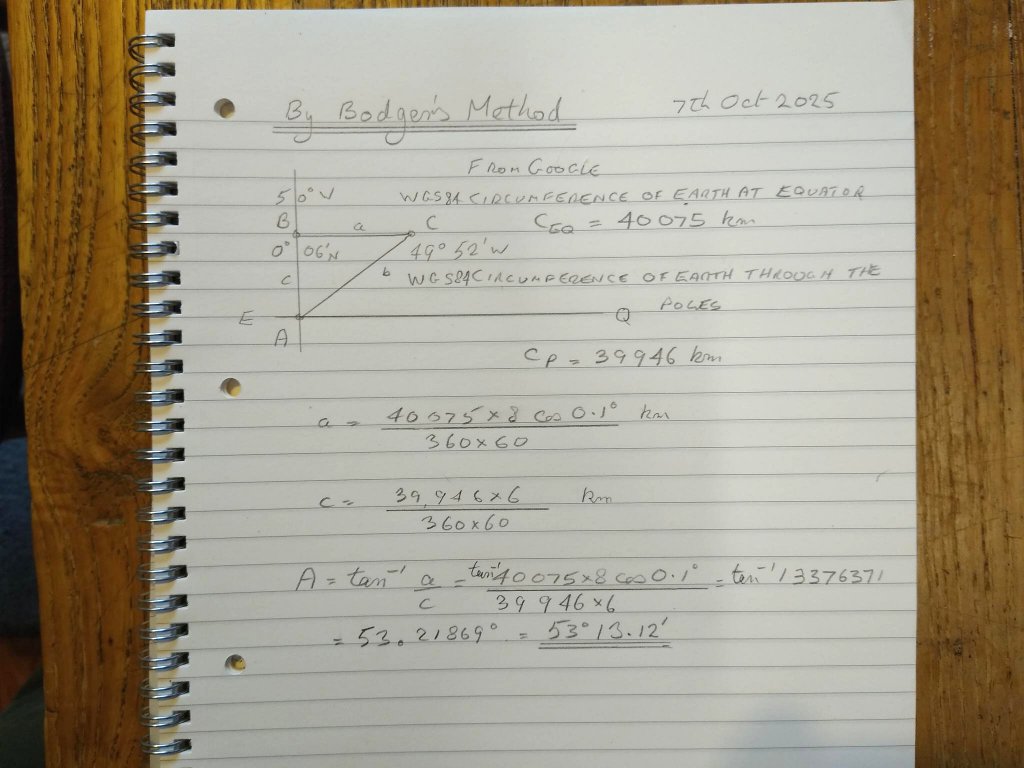 By Bodger's Method 7th Oct 2025
FROM GOOGLE
50° W WGS84 CIRCUMFERENCE OF EARTH AT EQUATOR
B a C C_EQ = 40075 km
0° 06'N 49° 52' W
c b WGS84 CIRCUMFERENCE OF EARTH THROUGH THE
E Q POLES
A
C_P = 39946 km
a = 40075 × 8 cos 0.1° km
360 × 60
c = 39,946 × 6 km
360 × 60
A = tan⁻¹ a/c = tan⁻¹ 40075 × 8 cos 0.1° / 39946 × 6 = tan⁻¹ 13376371
= 53.21869° = 53° 13.12'